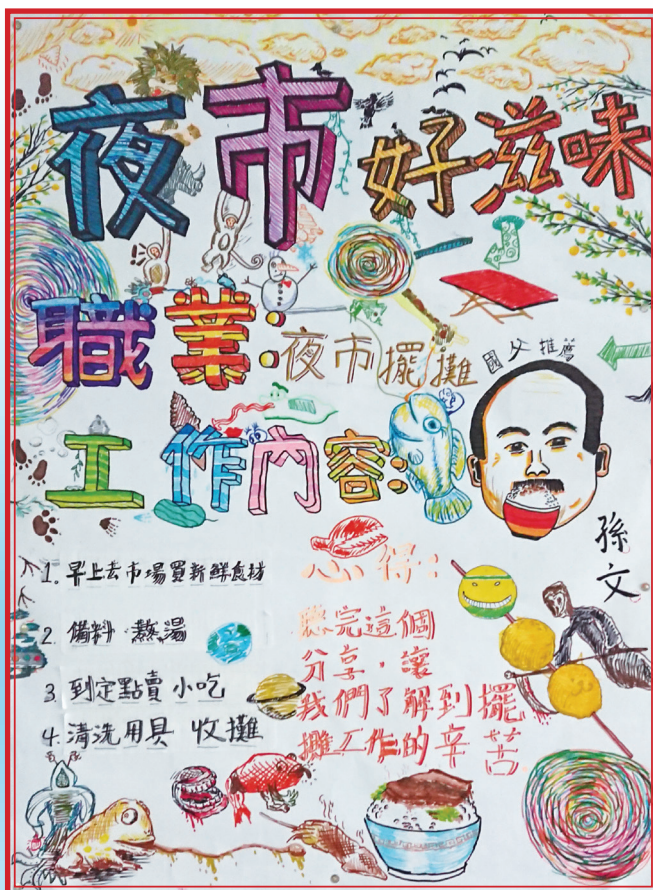 夜市好滋味
職業:夜市擺攤
國父推薦
工作內容:
孫文
1. 早上去市場買新鮮食材
2. 備料、熬湯
3. 到定點賣小吃
4. 清洗用具 收攤
心得:
聽完這個
分享,讓
我們了解到擺
攤工作的辛苦